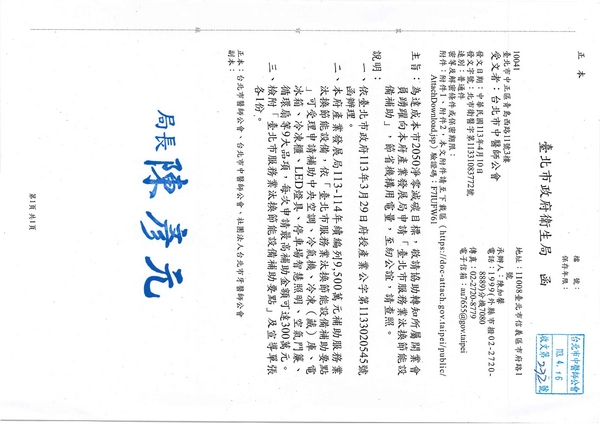 正 本
檔 號：
保存年限：
台北市中醫師公會
113. 4. 16
收文第 272 號
臺北市政府衛生局 函
地址：11008臺北市信義區市府路1號
承辦人：陳加馨
電話：(1999)外縣市撥02-2720-8889)分機7080
傳真：02-2720-8779
電子信箱：au7655@gov.taipei
10041
臺北市中正區青島西路11號3樓
受文者：台北市中醫師公會
發文日期：中華民國113年4月10日
發文字號：北市衛醫字第11331083772號
速別：普通件
密等及解密條件或保密期限：
附件：附件1、附件2，本文附件請至下載區（https://doc-attach.gov.taipei/public/
AttachDownload.jsp）驗證碼：F7IUPW61
主旨：為達成本市2050淨零減碳目標，敬請協助轉知所屬開業會
員踴躍向本府產業發展局申請「臺北市服務業汰換節能設
備補助」，節省機構用電量，至紉公誼，請查照。
說明：
一、依臺北市政府113年3月29日府授產業公字第1133020545號
函辦理。
二、本府產業發展局113-114年續編列9,500萬元補助服務業
汰換節能設備，依「臺北市服務業汰換節能設備補助要點
」可受理申請補助中央空調、冷氣機、冷凍（藏）庫、電
冰箱、冷凍櫃、LED燈具、停車場智慧照明、空氣門簾、
循環扇等9大品項，每次申請最高補助金額可達300萬元。
三、檢附「臺北市服務業汰換節能設備補助要點」及宣導單張
各1份。
正本：台北市醫師公會、台北市中醫師公會、社團法人台北市牙醫師公會
副本：
局長 陳彥元
第1頁 共1頁